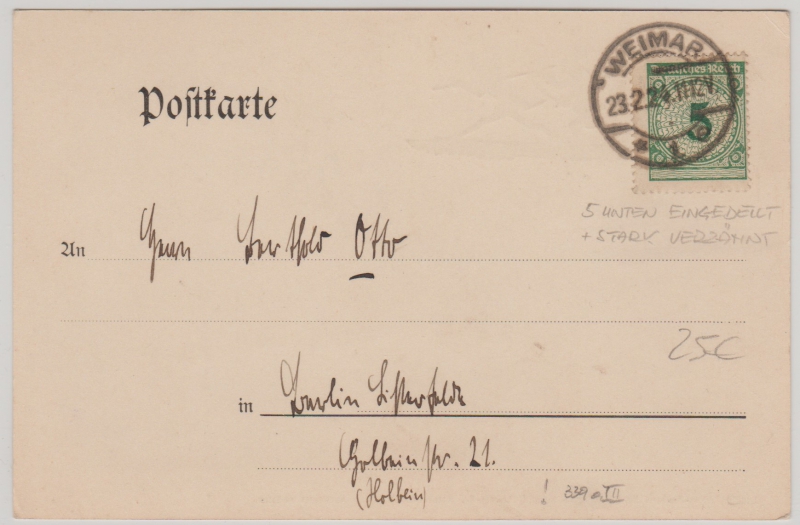 WEIMAR
23.2.24. 11-12V
* 1 c
Deutsches Reich
5
Postkarte
5 UNTEN EINGEDELLT
+ STARK VERZÄHNT
An Herrn Berthold Otto
25€
in Berlin Lichterfelde
Holbeinstr. 21.
(Holbein)
! 339a